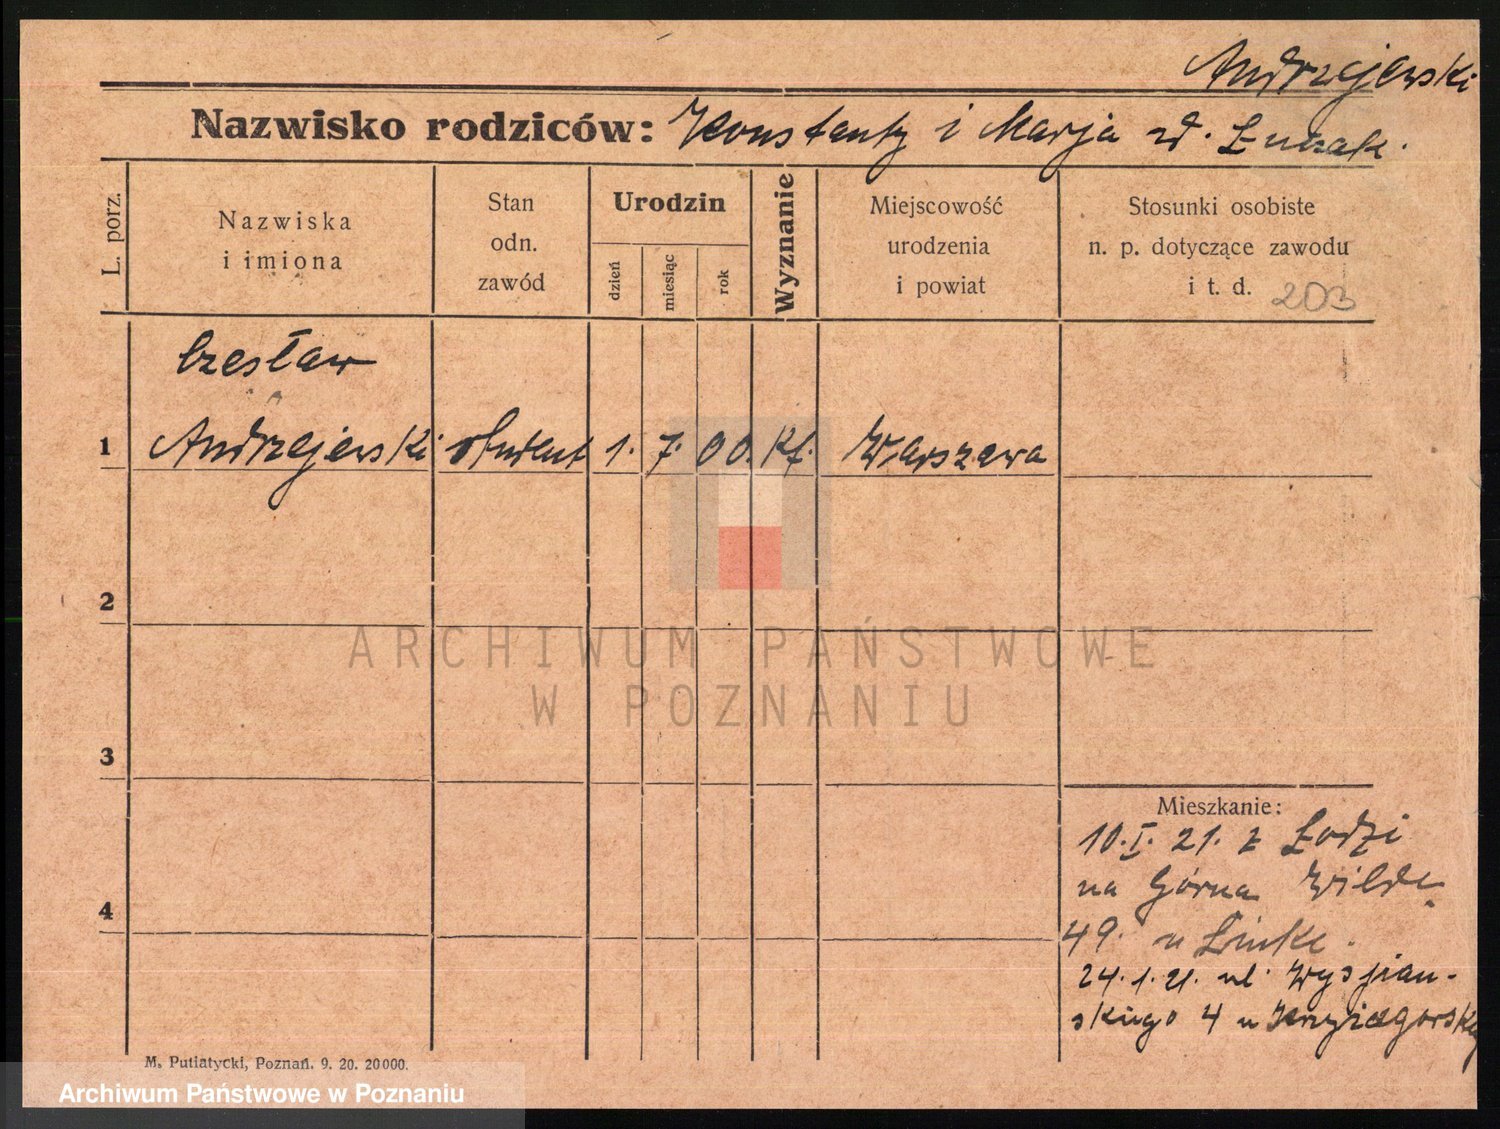 Andrzejewski
Nazwisko rodziców: Konstanty i Marja zd. Łuczak.
L. porz.
Nazwiska
i imiona
Stan
odn.
zawód
Urodzin
dzień
miesiąc
rok
Wyznanie
Miejscowość
urodzenia
i powiat
Stosunki osobiste
n. p. dotyczące zawodu
i t. d. 203
Czesław
1 Andrzejewski student 1. 7. 00. Kf. Warszawa
2
ARCHIWUM PAŃSTWOWE
W POZNANIU
3
Mieszkanie:
10.I.21. z Łodzi
na Górna Wildę
4
49. u Linke.
24.1.21. ul. Wyspiań-
skiego 4 u
M. Putiatycki, Poznań. 9. 20. 20000.
Archiwum Państwowe w Poznaniu